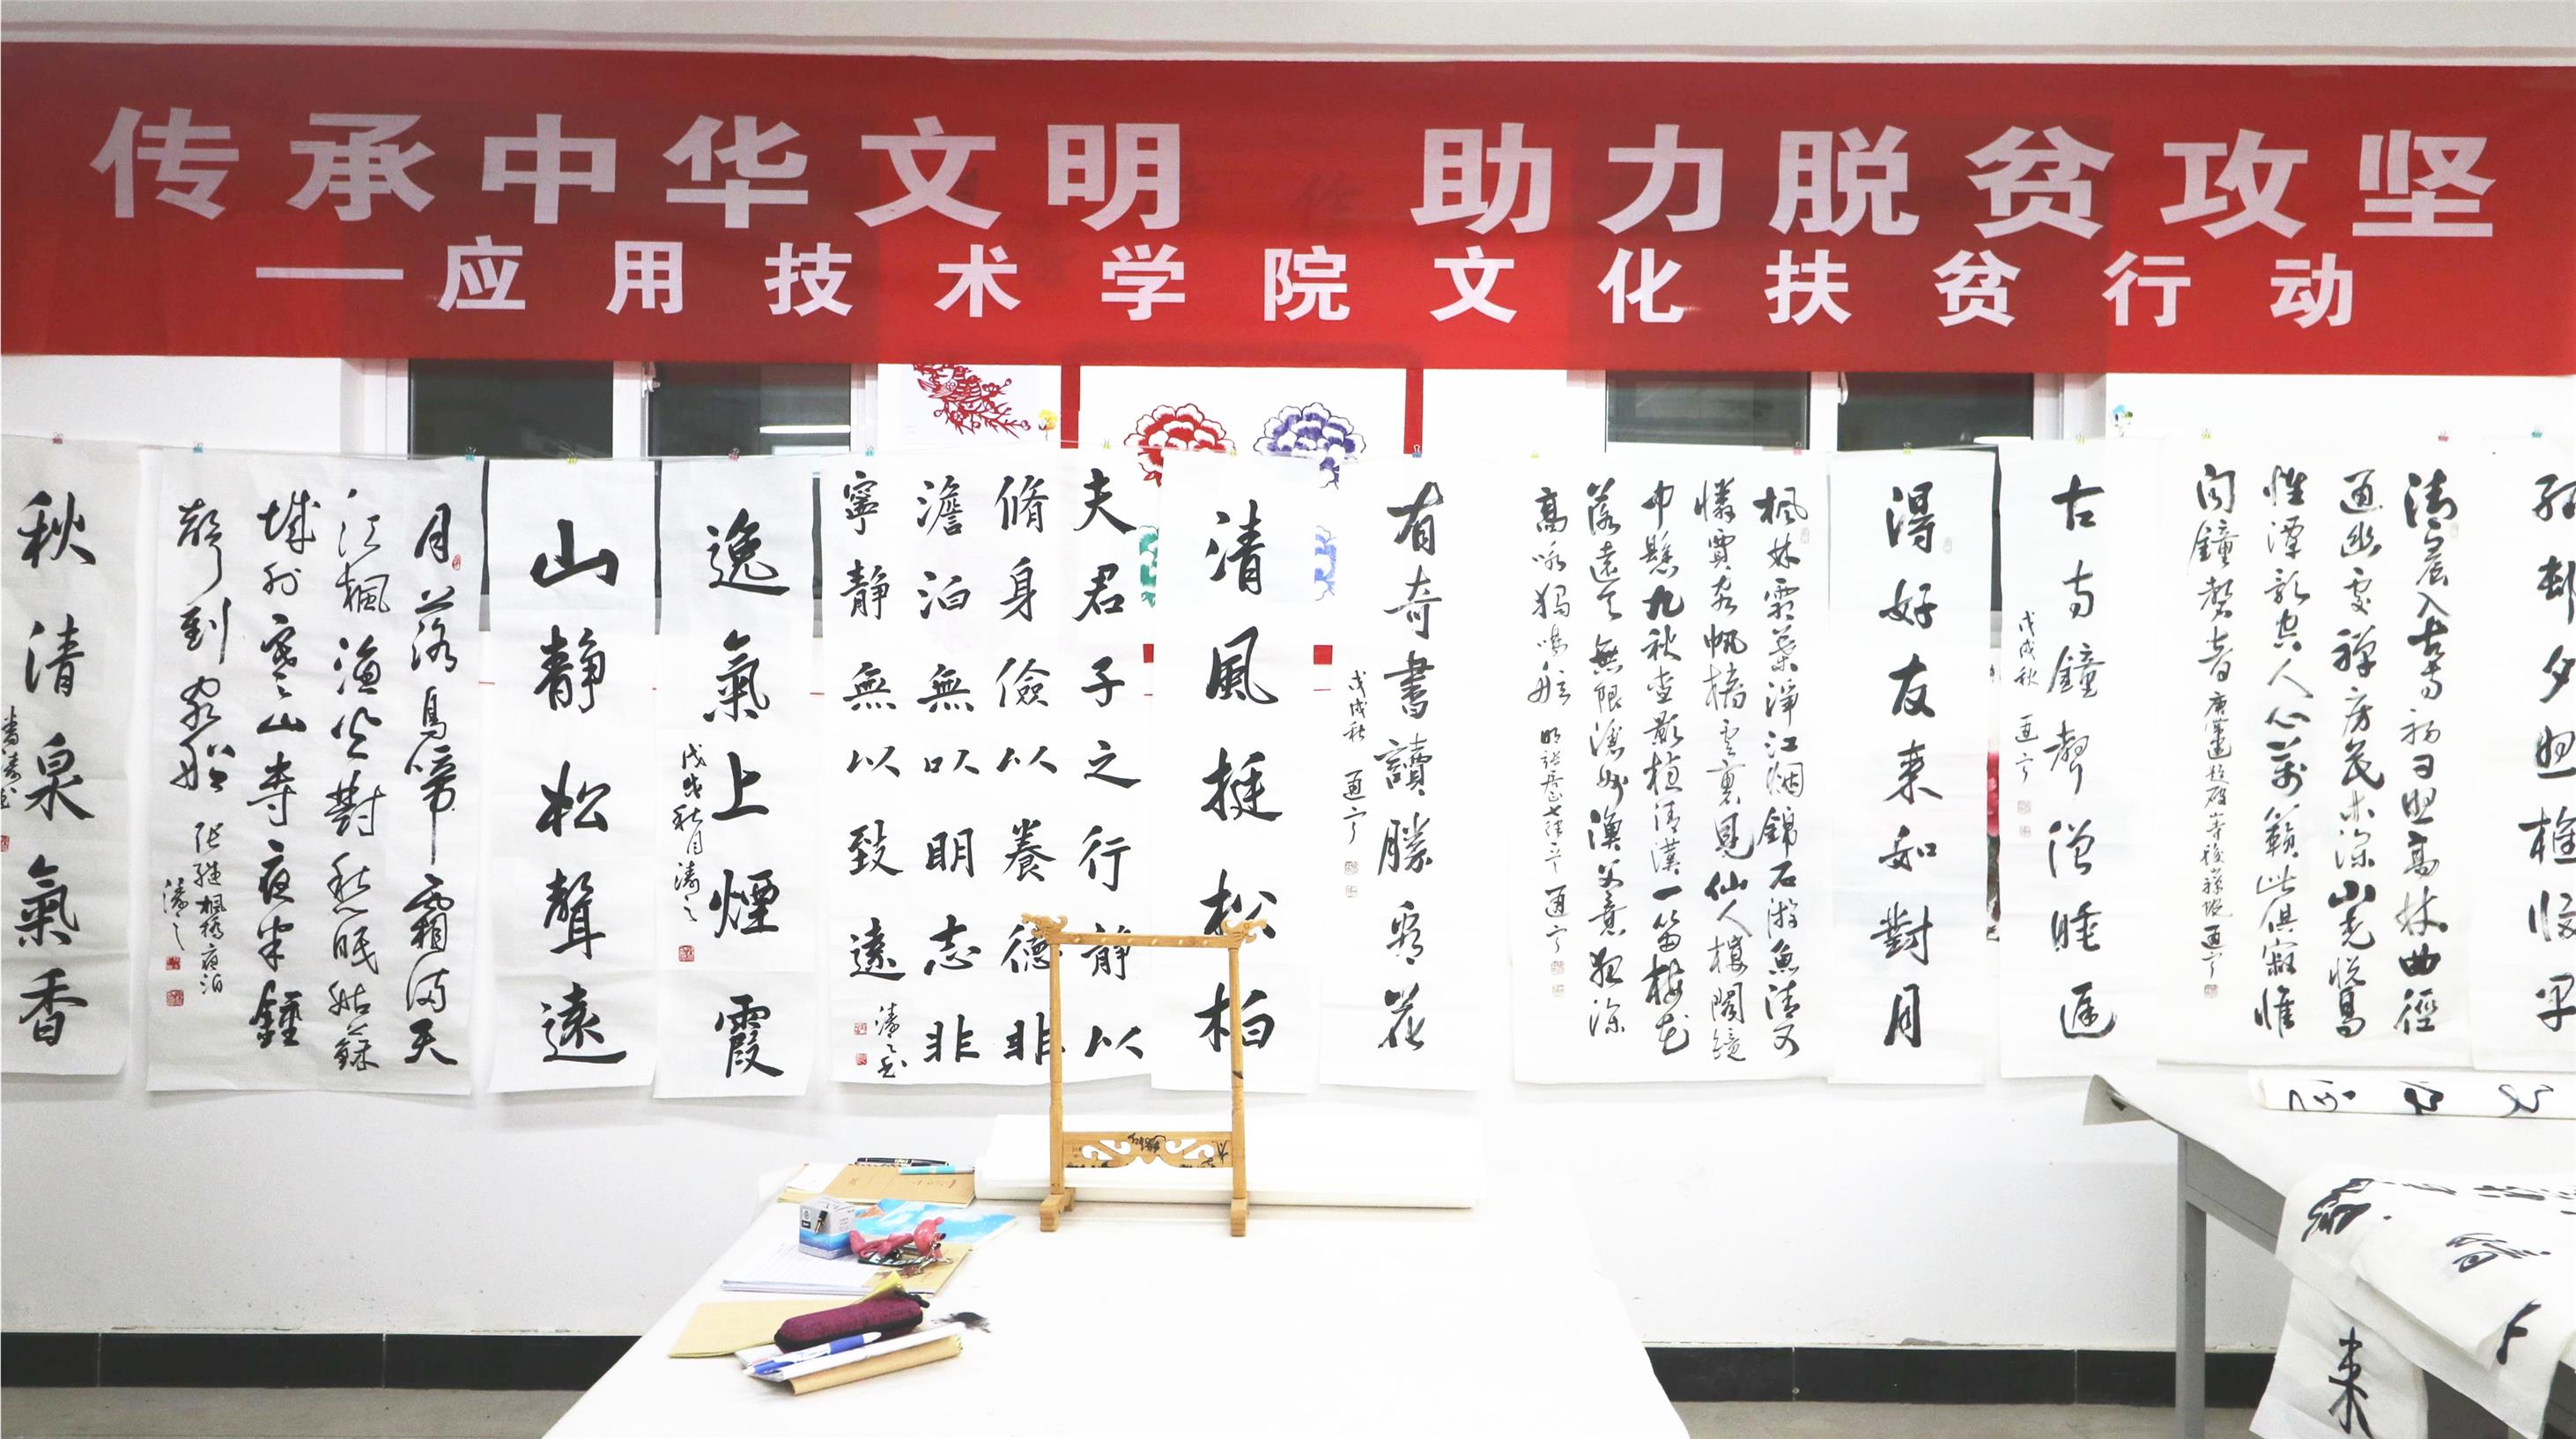 传承中华文明 助力脱贫攻坚
——应用技术学院文化扶贫行动
孤邨夕照樵归早
清晨入古寺初日照高林曲徑
通幽處禪房花木深山光悦鳥
性潭影空人心萬籟此俱寂惟
聞鐘磬音
唐常建題破山寺後禪院
古寺鐘聲僧睡遲
戊戌秋
得好友來如對月
楓林霜葉淨江烟錦石游魚清可
憐賈客帆檣雲裏見仙人樓閣鏡
中懸九秋查影橫清漢一笛梅花
落遠天無限滄州漁父意夜深
高咏獨鳴舷
明張居正七律一首
有奇書讀勝看花
戊戌秋
清風挺松柏
夫君子之行静以
脩身儉以養德非
澹泊無以明志非
寧静無以致遠
濤之书
逸氣上煙霞
戊戌秋月濤之
山静松聲遠
月落烏啼霜满天
江楓渔火對愁眠姑蘇
城外寒山寺夜半鐘
聲到客船
张继楓橋夜泊
濤之
秋清泉氣香
来